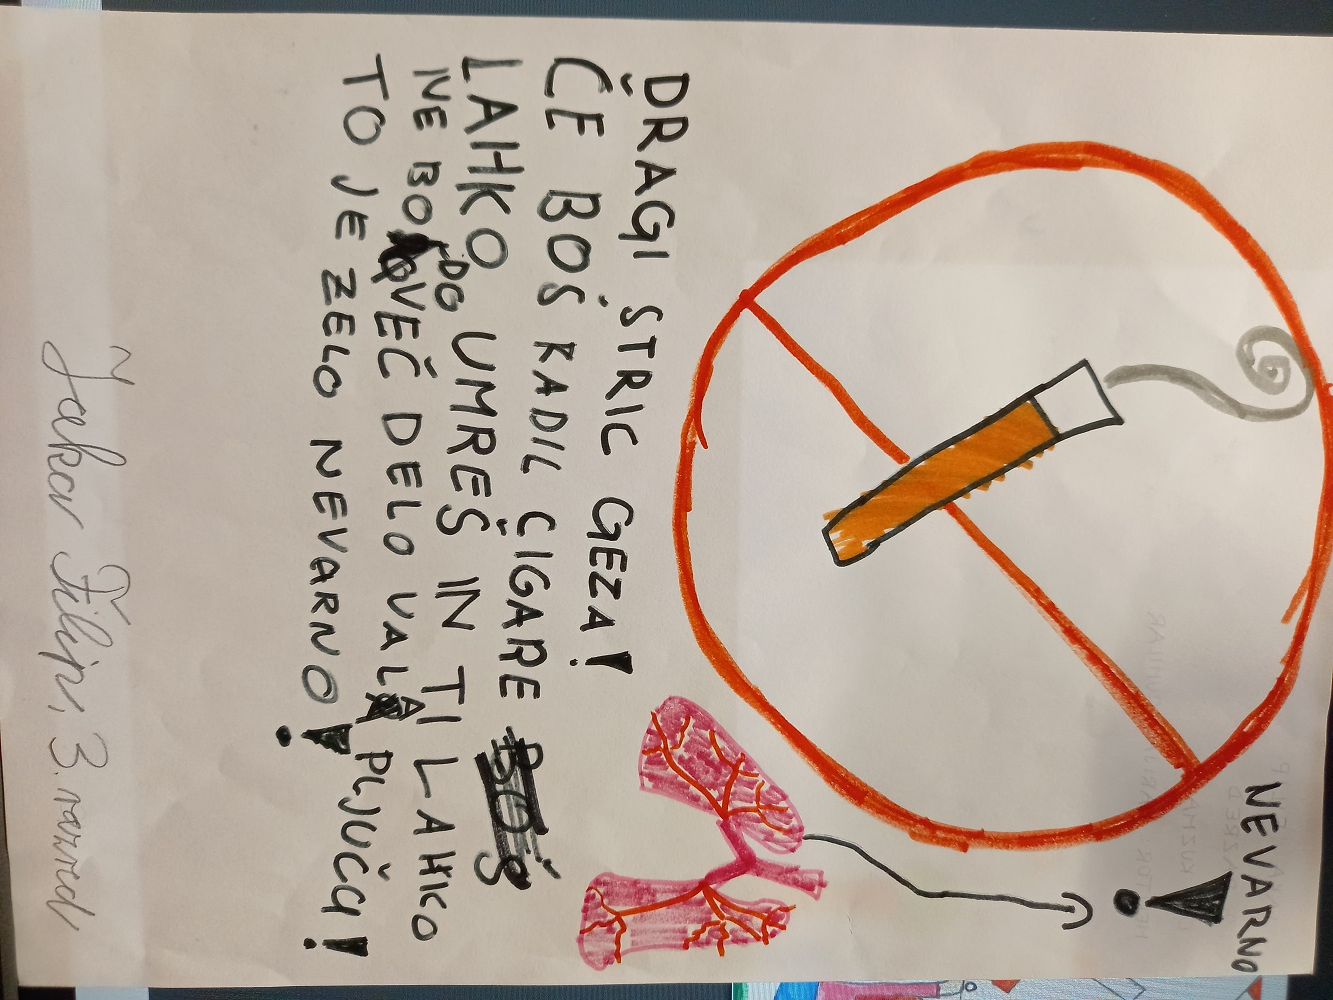 NEVARNO!
DRAGI STRIC GEZA!
ČE BOŠ KADIL CIGARE
LAHKO UMREŠ IN TI LAHKO
NE BODO VEČ DELOVALA PLJUČA!
TO JE ZELO NEVARNO!
Jaka Filip, 3. razred